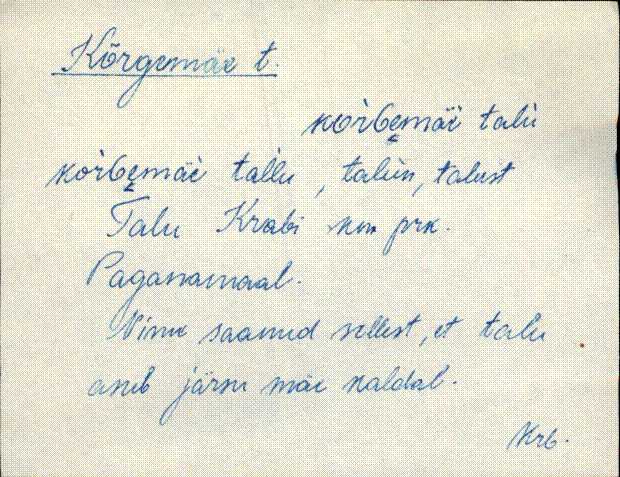 Kõrgemäe t.
kõrbemäe talu
kõrbemäe tallu, talun, talust
Talu Krabi kn prk.
Paganamaal.
Nimi saanud sellest, et talu
asub järsu mäe kaldal.
Krb.